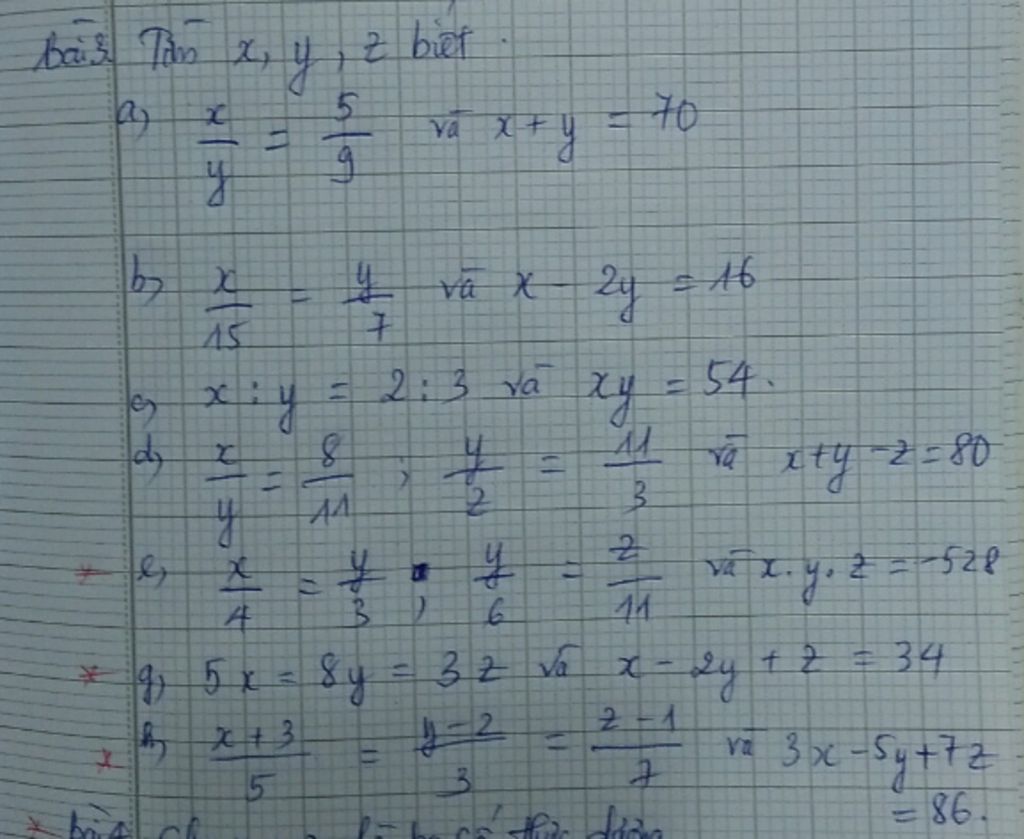 bài 3 Tìm x, y, z biết.
a) x/y = 5/9 và x + y = 70
b) x/15 = y/7 và x - 2y = 16
c) x : y = 2 : 3 và xy = 54.
d) x/y = 8/11 ; y/z = 11/3 và x+y-z=80
* e) x/4 = y/3 ; y/6 = z/11 và x.y.z = -528
* g) 5x = 8y = 3z và x - 2y + z = 34
x h) x+3/5 = y-2/3 = z-1/7 và 3x-5y+7z
= 86.
* bài 4